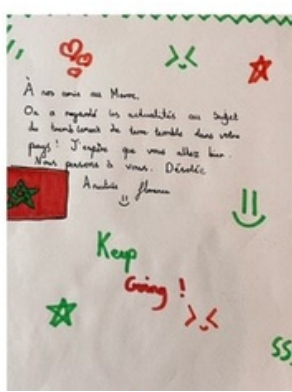 À nos amis au Maroc,
On a regardé les actualités au sujet
du tremblement de terre terrible dans votre
pays! J'espère que vous allez bien.
Nous pensons à vous. Désolée
Keep
Going!